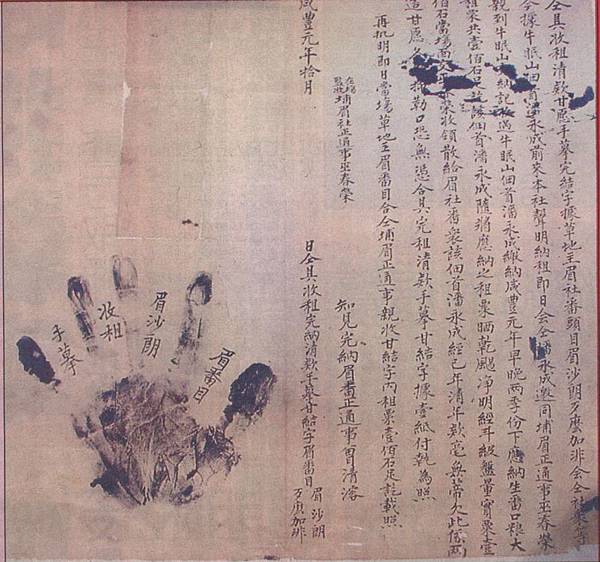 仝具收租清款甘愿手摹完結字據草地主眉社番頭目眉沙朗万麽加非会仝社衆等
今據牛眠山佃首潘永成前來本社聲明納租即日会仝潘永成邀同埔眉正通事巫春榮
親到牛眠山納記過牛眠山佃首潘永成繳納咸豐元年早晚兩季份下應納生番口粮大
租粟共壹佰石足該佃首潘永成隨將應納之租粟晒乾颺净明經斗級盤量實粟壹
佰石當場面交榮收領散給眉社番衆該佃首潘永成經已年清年款毫無蒂欠此係兩
造甘愿抑勒口恐無憑合具完租清款手摹甘結字據壹紙付執為照
再批明即日當場草地主眉番目合仝埔眉正通事親收甘結字內租粟壹佰石足訖載照
在場監收埔眉社正通事巫春榮
知見完納眉番正通事曾清
咸豐元年拾月 日仝具收租完納清款手摹甘結字眉番目 眉沙朗
万麽加非
眉番目
眉沙朗
收租
手摹